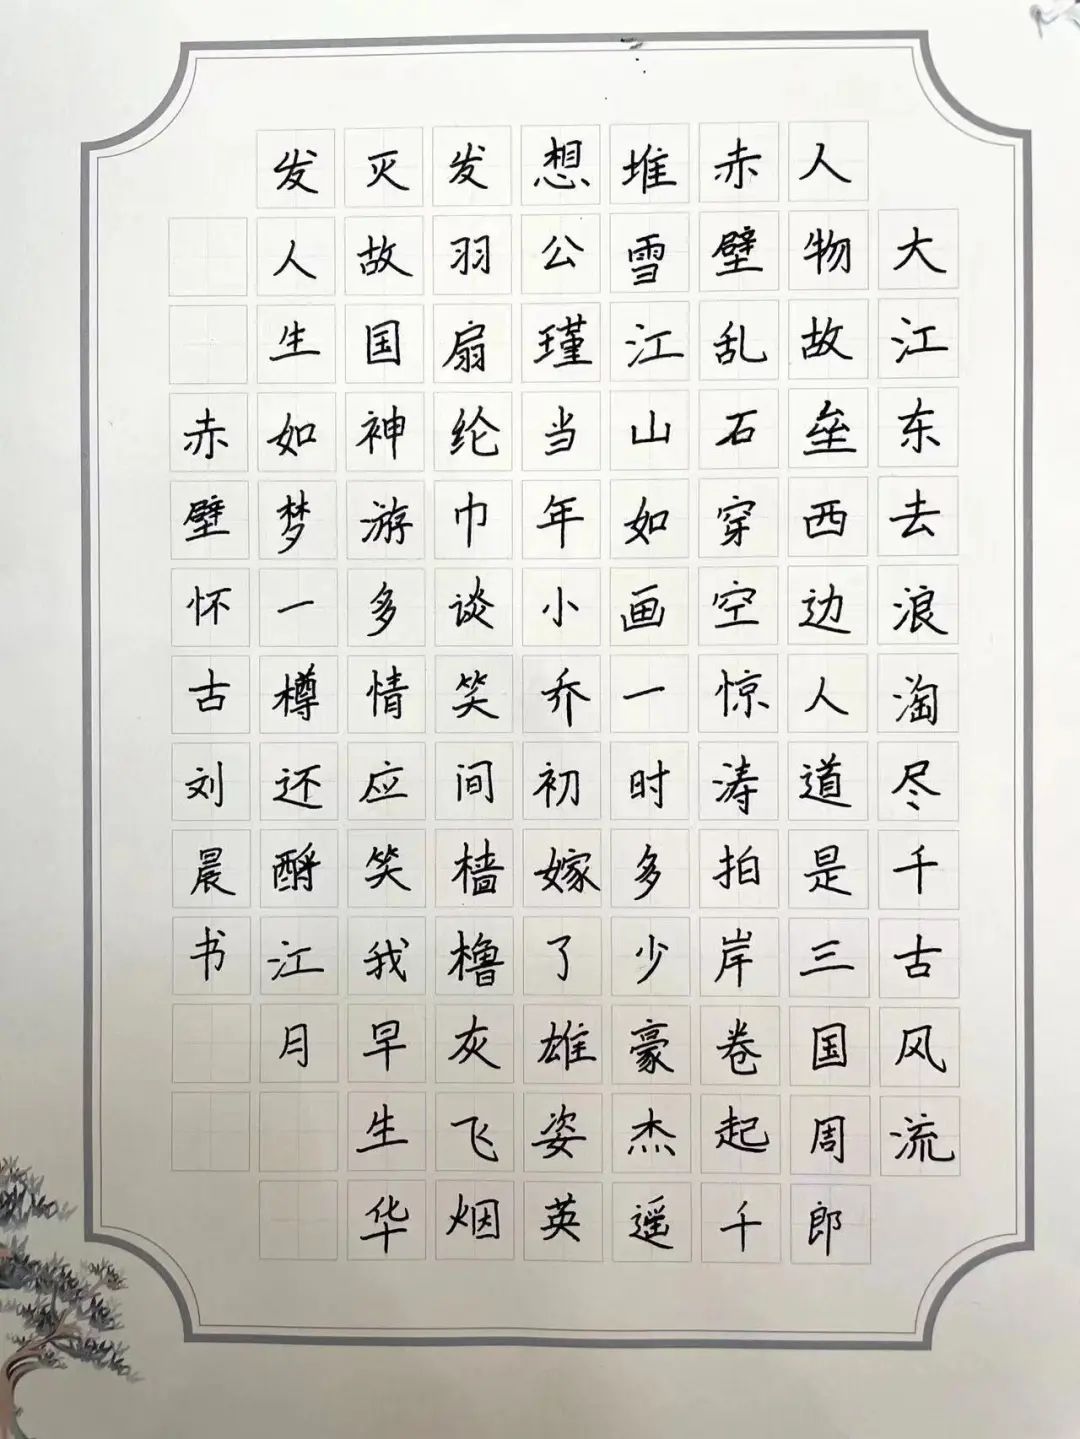 大江东去浪淘尽千古风流
人物故垒西边人道是三国周郎
赤壁乱石穿空惊涛拍岸卷起千
堆雪江山如画一时多少豪杰遥
想公瑾当年小乔初嫁了雄姿英
发羽扇纶巾谈笑间樯橹灰飞烟
灭故国神游多情应笑我早生华
发人生如梦一樽还酹江月
赤壁怀古刘晨书